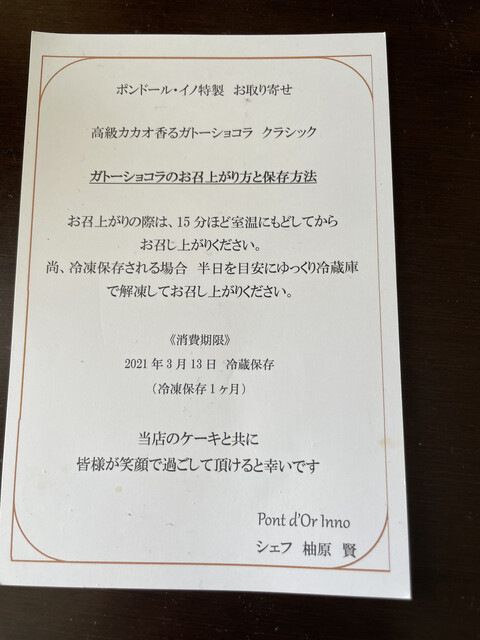 ポンドール・イノ特製 お取り寄せ
高級カカオ香るガトーショコラ クラシック
ガトーショコラのお召上がり方と保存方法
お召上がりの際は、15分ほど室温にもどしてから
お召し上がりください。
尚、冷凍保存される場合 半日を目安にゆっくり冷蔵庫
で解凍してお召し上がりください。
《消費期限》
2021年3月13日 冷蔵保存
（冷凍保存1ヶ月）
当店のケーキと共に
皆様が笑顔で過ごして頂けると幸いです
Pont d'Or Inno
シェフ 柚原 賢